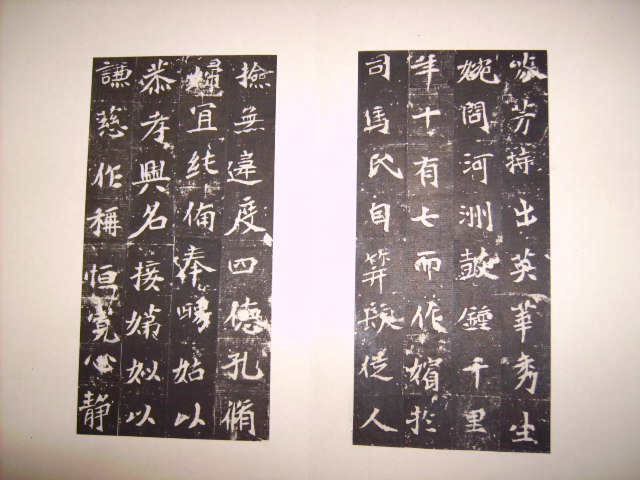 芬芳特出英華秀生
婉問河洲鼓鍾千里
年十有七而作嬪於
司馬氏自笄髮從人
撿無違度四德孔脩
婦宜純備奉舅姑以
恭孝興名接娣姒以
謙慈作稱恒寬心靜